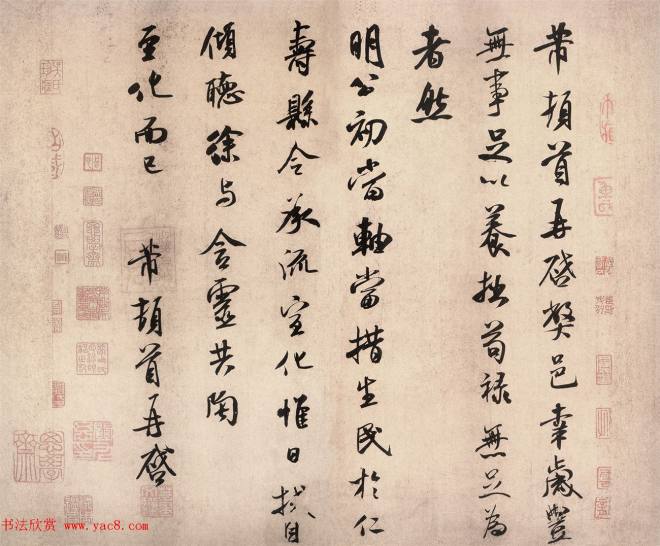 芾頓首再啓弊邑幸歲豐
無事足以養拙苟祿無足為
者然
明公初當軸當措生民於仁
壽縣令承流宣化惟日拭目
傾聽徐與含靈共陶
至化而已 芾頓首再啓
书法欣赏 www.yac8.com